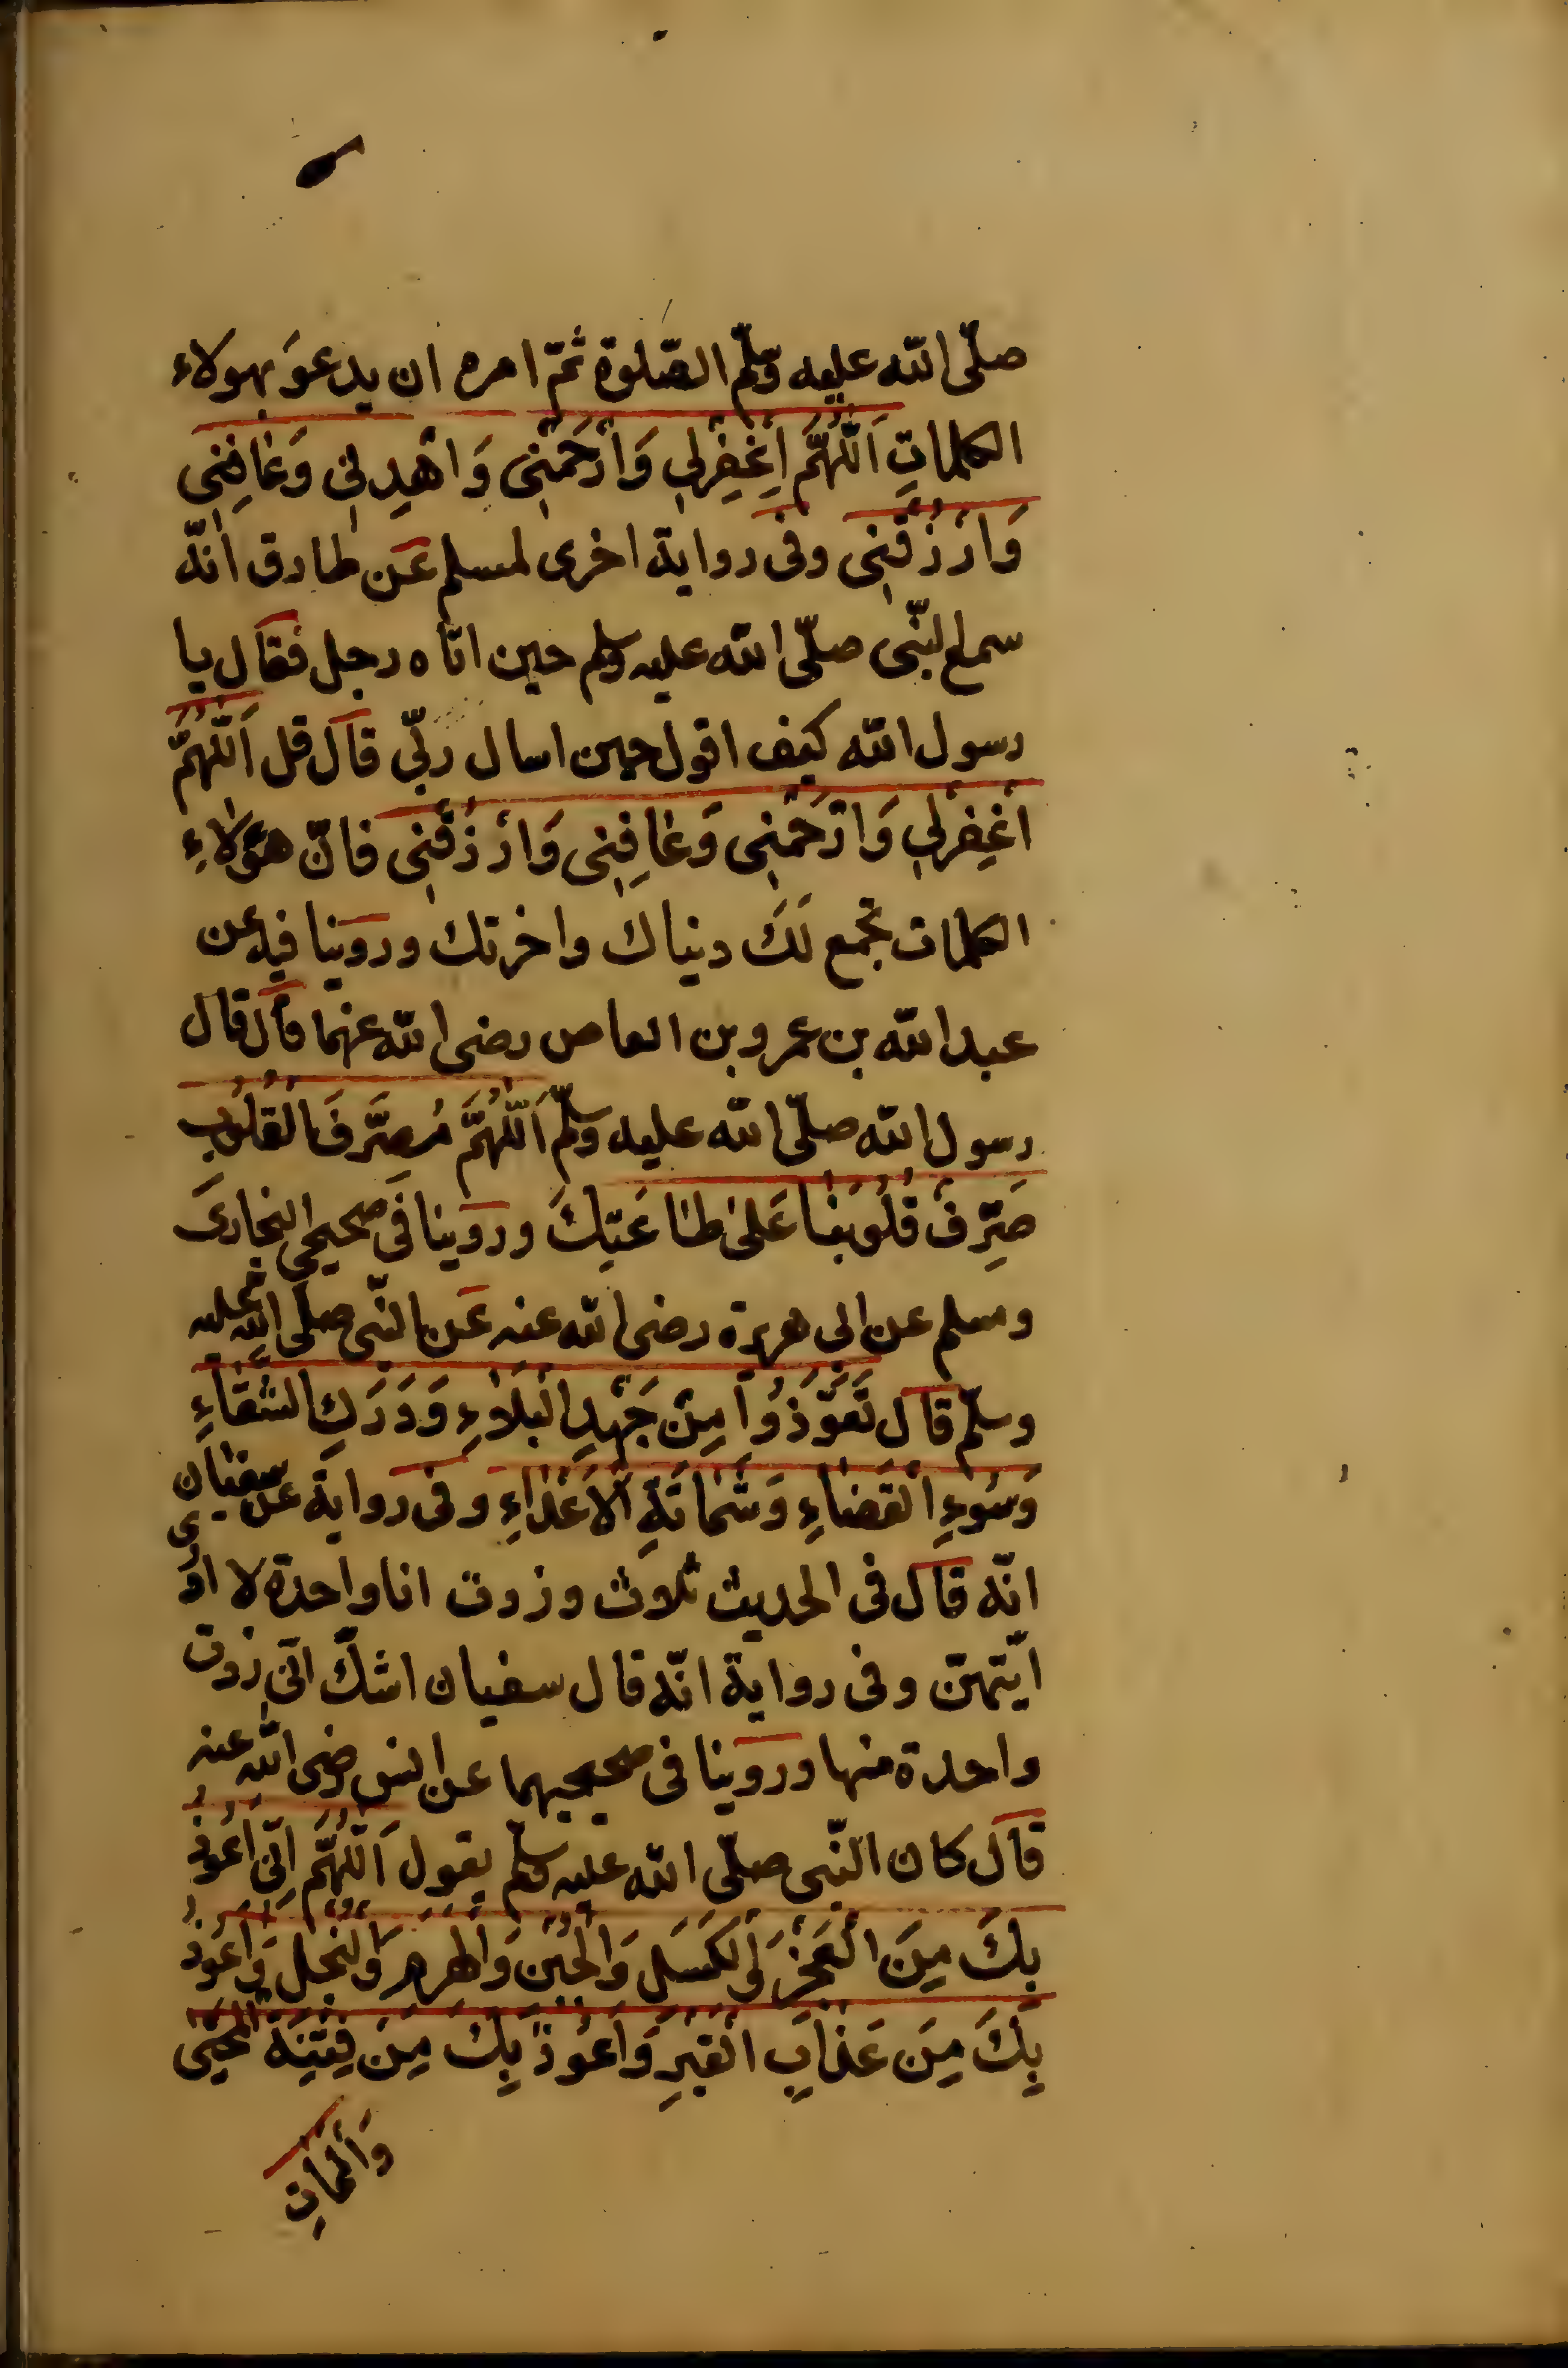 صلّى الله عليه وسلّم الصّلوة ثمّ امره ان يدعوَ بهولاء
الكلمات اَللّٰهُمَّ اغْفِرْلِي وَارْحَمْنِى وَاهْدِنِى وَعَافِنِى
وَارْزُقْنِى وفى رواية اخرى لمسلم عن طارق انّه
سمع النّبى صلّى الله عليه وسلم حين اتاه رجل فقال يا
رسول الله كيف اقول حين اسال ربّي قال قل اَللّٰهُمَّ
اغْفِرْلِي وَارْحَمْنِى وَعَافِنِى وَارْزُقْنِى فانّ هؤلاءِ
الكلمات تجمع لَكَ دنياك واخرتك وروينا فيه عن
عبد الله بن عمرو بن العاص رضى الله عنهما قال قال
رسول الله صلّى الله عليه وسلّم اَللّٰهُمَّ مُصَرِّفَ الْقُلُوبِ
صَرِّفْ قُلُوبَنَا عَلىٰ طَاعَتِكَ وروينا فى صحيحي البخارى
ومسلم عن ابى هريرة رضى الله عنه عن النّبى صلّى الله عليه
وسلّم قال تَعَوَّذُوا مِنْ جَهْدِ الْبَلَاءِ وَدَرَكِ الشَّقَاءِ
وَسُوءِ الْقَضَاءِ وَشَمَاتَةِ الْاَعْدَاءِ وفى رواية عن سفيان
انّه قال فى الحديث ثلاث وزدت انا واحدة لا ادرى
ايّتهنّ وفى رواية انّه قال سفيان اشكّ انّى زدت
واحدة منها وروينا فى صحيحيهما عن انس رضى الله عنه
قال كان النّبى صلّى الله عليه وسلم يقول اَللّٰهُمَّ اِنِّى اَعُوذُ
بِكَ مِنَ الْعَجْزِ وَالْكَسَلِ وَالْجُبْنِ وَالْهَرَمِ وَالْبُخْلِ وَاَعُوذُ
بِكَ مِنْ عَذَابِ الْقَبْرِ وَاَعُوذُ بِكَ مِنْ فِتْنَةِ الْمَحْيَى
وَالْمَمَاتِ